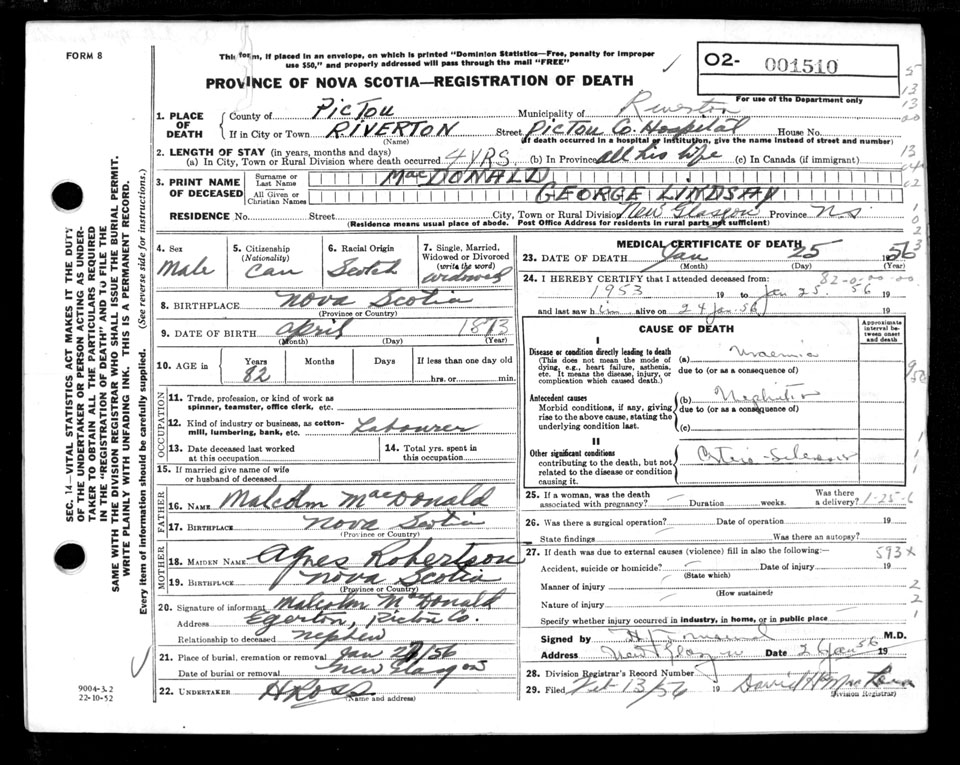 FORM 8
This form, if placed in an envelope, on which is printed "Dominion Statistics—Free, penalty for improper
use $50," and properly addressed will pass through the mail "FREE"
PROVINCE OF NOVA SCOTIA—REGISTRATION OF DEATH
O2- 001510
For use of the Department only
1. PLACE OF DEATH
County of Pictou Municipality of Riverton
If in City or Town RIVERTON Street Pictou Co. Hospital House No.
(Name) (If death occurred in a hospital or institution, give the name instead of street and number)
2. LENGTH OF STAY (in years, months and days)
(a) In City, Town or Rural Division where death occurred 4 YRS. (b) In Province all his life (c) In Canada (if immigrant)
3. PRINT NAME OF DECEASED
Surname or Last Name MacDONALD
All Given or Christian Names GEORGE LINDSAY
RESIDENCE No. Street City, Town or Rural Division New Glasgow Province N.S.
(Residence means usual place of abode. Post Office Address for residents in rural parts not sufficient)
4. Sex Male
5. Citizenship (Nationality) Can
6. Racial Origin Scotch
7. Single, Married, Widowed or Divorced (write the word) widowed
8. BIRTHPLACE Nova Scotia
(Province or Country)
9. DATE OF BIRTH April 1873
(Month) (Day) (Year)
10. AGE in Years 82 Months Days If less than one day old
hrs. or min.
OCCUPATION
11. Trade, profession, or kind of work as
spinner, teamster, office clerk, etc.
12. Kind of industry or business, as cotton-
mill, lumbering, bank, etc. Labourer
13. Date deceased last worked
at this occupation
14. Total yrs. spent in
this occupation
15. If married give name of wife
or husband of deceased
FATHER
16. NAME Malcolm MacDonald
17. BIRTHPLACE Nova Scotia
(Province or Country)
MOTHER
18. MAIDEN NAME Agnes Robertson
19. BIRTHPLACE Nova Scotia
(Province or Country)
20. Signature of informant Malcolm MacDonald
Address Egerton, Pictou Co.
Relationship to deceased nephew
21. Place of burial, cremation or removal Jan /56
Date of burial or removal New Glasgow
22. UNDERTAKER H Ross
(Name and address)
MEDICAL CERTIFICATE OF DEATH
23. DATE OF DEATH Jan 25 1956
(Month) (Day) (Year)
82-00-00-00.
24. I HEREBY CERTIFY that I attended deceased from:
1953 19 to Jan 25 56 19
and last saw him alive on 24 Jan 56 19
CAUSE OF DEATH
Approximate interval between onset and death
I
Disease or condition directly leading to death
(This does not mean the mode of
dying, e.g., heart failure, asthenia,
etc. It means the disease, injury, or
complication which caused death.)
(a) Uraemia
due to (or as a consequence of)
Antecedent causes
Morbid conditions, if any, giving
rise to the above cause, stating the
underlying condition last.
(b) Nephritis
due to (or as a consequence of)
(c)
II
Other significant conditions
contributing to the death, but not
related to the disease or condition
causing it.
25. If a woman, was the death
associated with pregnancy? Duration weeks. Was there
a delivery? 1-25-6
26. Was there a surgical operation? Date of operation 19
State findings Was there an autopsy?
27. If death was due to external causes (violence) fill in also the following:— 593x
Accident, suicide or homicide? Date of injury 19
(State which)
Manner of injury
(How sustained)
Nature of injury
Specify whether injury occurred in industry, in home, or in public place
Signed by M.D.
Address New Glasgow Date 26 Jan 56 19
28. Division Registrar's Record Number
29. Filed Feb 13/56 19 David H Mac
(Division Registrar)
SEC. 14—VITAL STATISTICS ACT MAKES IT THE DUTY
OF THE UNDERTAKER OR PERSON ACTING AS UNDER-
TAKER TO OBTAIN ALL THE PARTICULARS REQUIRED
IN THE "REGISTRATION OF DEATH" AND TO FILE THE
SAME WITH THE DIVISION REGISTRAR WHO SHALL ISSUE THE BURIAL PERMIT.
WRITE PLAINLY WITH UNFADING INK. THIS IS A PERMANENT RECORD.
Every item of information should be carefully supplied. (See reverse side for instructions.)
9004-3.2
22-10-52